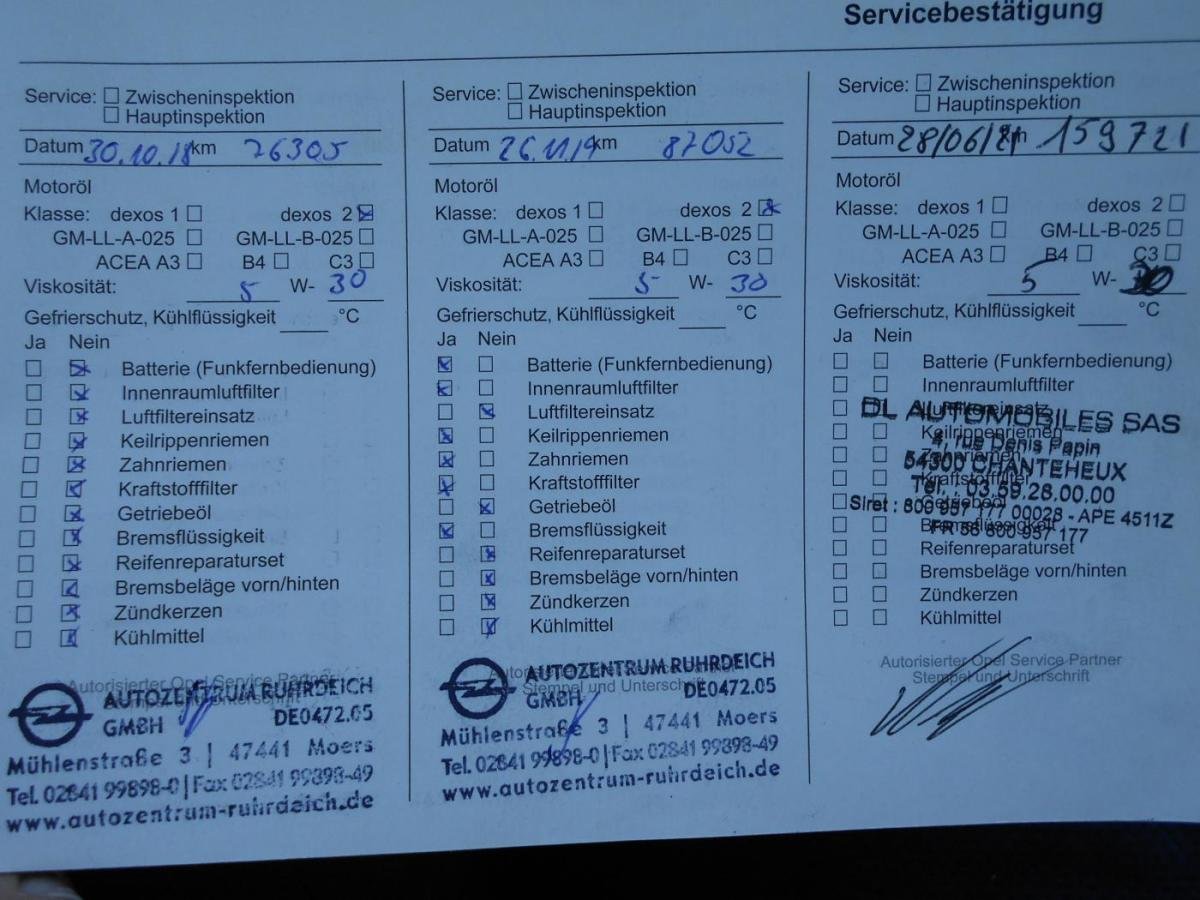 Servicebestätigung
Service: Zwischeninspektion
Hauptinspektion
Datum 30.10.18 km 76305
Motoröl
Klasse: dexos 1 dexos 2
GM-LL-A-025 GM-LL-B-025
ACEA A3 B4 C3
Viskosität: 5 W- 30
Gefrierschutz, Kühlflüssigkeit °C
Ja Nein
Batterie (Funkfernbedienung)
Innenraumluftfilter
Luftfiltereinsatz
Keilrippenriemen
Zahnriemen
Kraftstofffilter
Getriebeöl
Bremsflüssigkeit
Reifenreparaturset
Bremsbeläge vorn/hinten
Zündkerzen
Kühlmittel
Autorisierter Opel Service Partner
AUTOZENTRUM RUHRDEICH
GMBH DE0472.05
Mühlenstraße 3 | 47441 Moers
Tel. 02841 99898-0 | Fax 02841 99898-49
www.autozentrum-ruhrdeich.de
Service: Zwischeninspektion
Hauptinspektion
Datum 26.11.19 km 87052
Motoröl
Klasse: dexos 1 dexos 2
GM-LL-A-025 GM-LL-B-025
ACEA A3 B4 C3
Viskosität: 5 W- 30
Gefrierschutz, Kühlflüssigkeit °C
Ja Nein
Batterie (Funkfernbedienung)
Innenraumluftfilter
Luftfiltereinsatz
Keilrippenriemen
Zahnriemen
Kraftstofffilter
Getriebeöl
Bremsflüssigkeit
Reifenreparaturset
Bremsbeläge vorn/hinten
Zündkerzen
Kühlmittel
AUTOZENTRUM RUHRDEICH
Stempel und Unterschrift
GMBH DE0472.05
Mühlenstraße 3 | 47441 Moers
Tel. 02841 99898-0 | Fax 02841 99898-49
www.autozentrum-ruhrdeich.de
Service: Zwischeninspektion
Hauptinspektion
Datum 28/06/21 km 159721
Motoröl
Klasse: dexos 1 dexos 2
GM-LL-A-025 GM-LL-B-025
ACEA A3 B4 C3
Viskosität: 5 W- 30
Gefrierschutz, Kühlflüssigkeit °C
Ja Nein
Batterie (Funkfernbedienung)
Innenraumluftfilter
Luftfiltereinsatz
DL AUTOMOBILES SAS
Keilrippenriemen
4, rue Denis Papin
Zahnriemen
54300 CHANTEHEUX
Kraftstofffilter
Tél. : 03.59.28.00.00
Getriebeöl
Siret : 800 957 177 00028 - APE 4511Z
Bremsflüssigkeit
FR 56 800 957 177
Reifenreparaturset
Bremsbeläge vorn/hinten
Zündkerzen
Kühlmittel
Autorisierter Opel Service Partner
Stempel und Unterschrift